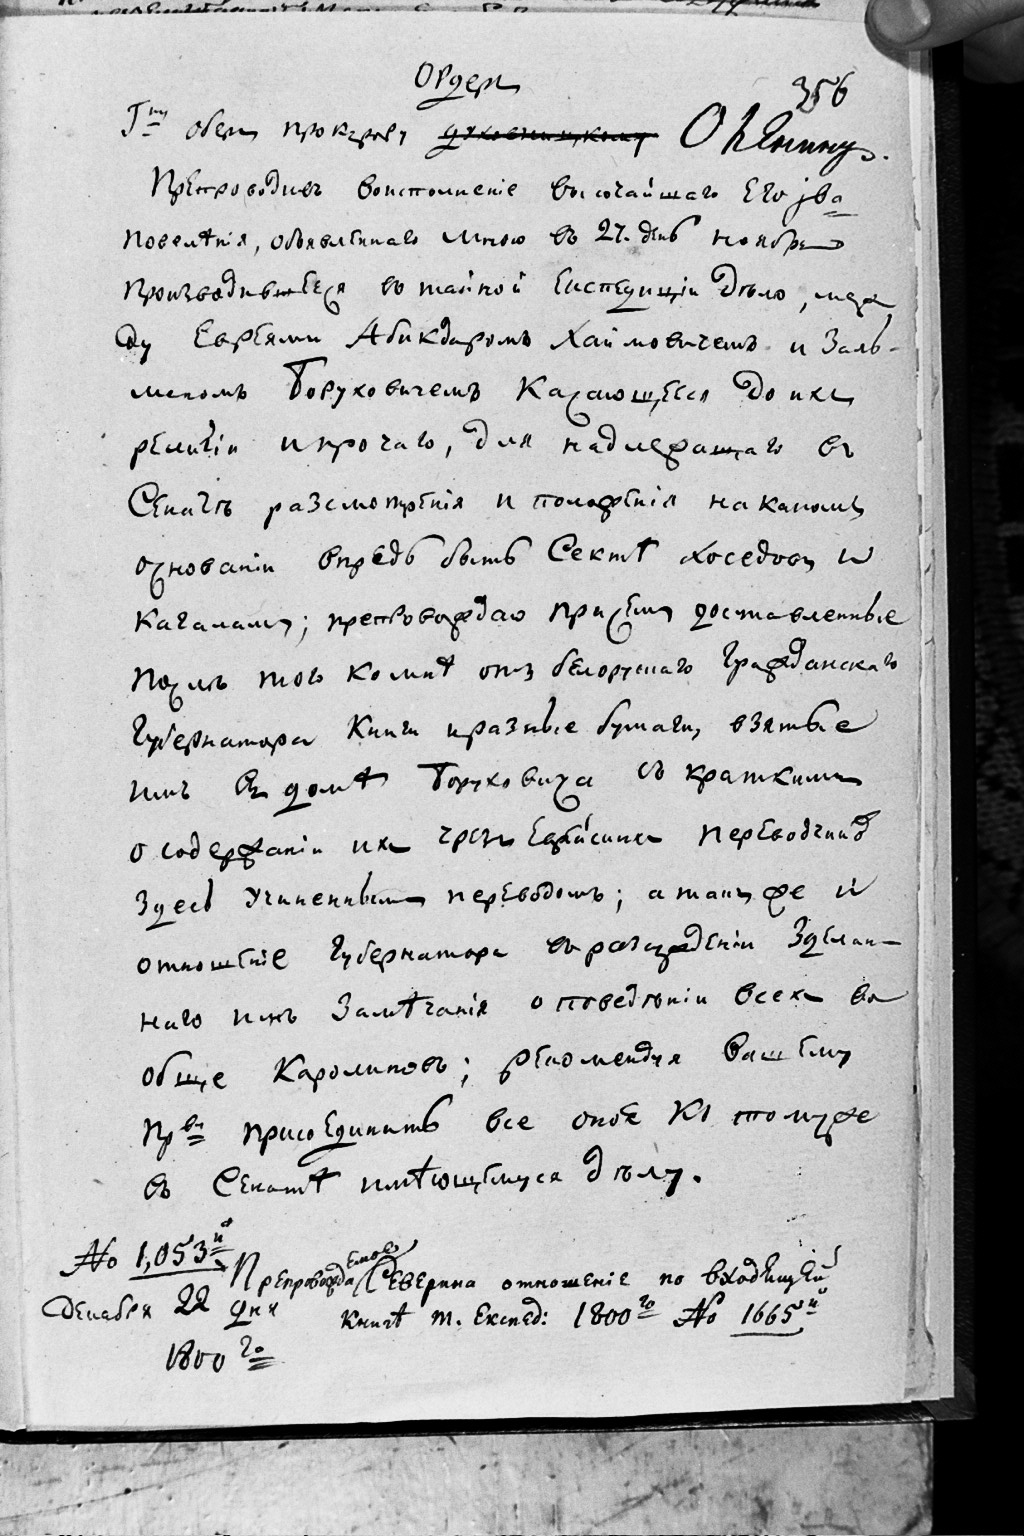 Ордеръ
356
Г-ну обер прокурору духовницкому Оленину.
Препроводивъ воисполнение высочайшаго Его ІВа
повелѣнія, объявленнаго мною въ 27. день ноября
производившееся въ тайной Експедицiи дѣло, меж
ду Евреями Абикдаромъ Хаймовичемъ и Заль-
маномъ Боруховичемъ касающееся до ихъ
религiи и прочаго, для надлежащаго въ
Сенатѣ разсмотренiя и положенiя на какомъ
основанiи впредь быть Сектѣ хоседовъ и
кагаламъ; препровождаю присемъ доставленные
послѣ того ко мнѣ отъ белорускаго Гражданскаго
Губернатора книги и разные бумаги, взятые
имъ въ домѣ Боруховича съ краткимъ
о содержанiи ихъ чрезъ Еврейскихъ переводчиков
здесь учиненнымъ переводомъ; а такъ же и
отношенiе Губернатора въ разсужденiи зделан-
наго имъ замѣчанiя о поведѣнiи всех во
обще Каролиновъ; рекомендуя вашему
Прву присоединить все оное къ томуже
въ Сенатѣ имѣющемуся дѣлу.
No 1,053й
Декабря 22 дня
1800го
Препровожда Северина отношенiе по входящей
книгѣ т. Експед: 1800го No 1665й